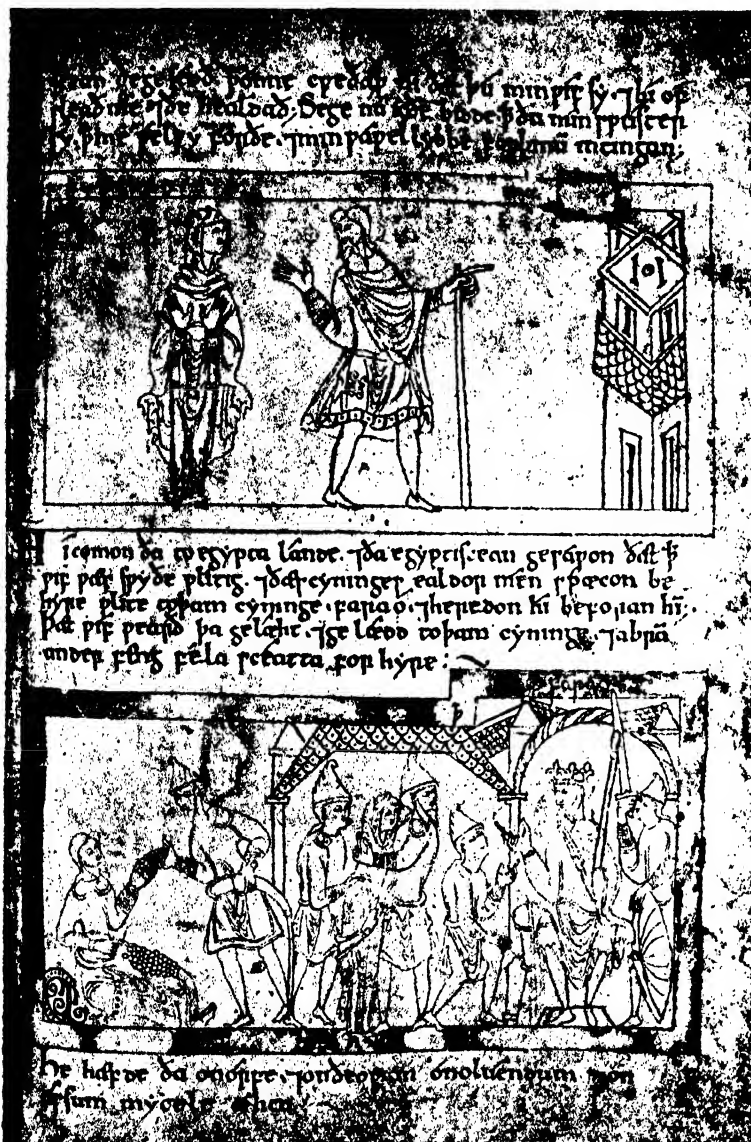 þonne cweðaþ hi ðæt þu min wif sy. ⁊ hi of
sleað me ⁊ ðe healdað. Sege nu ic ðe bidde þ ðu min swuster
sy. þ me wel sy for ðe. ⁊ min sawel lybbe for þinum intingan;
Hi comon ða to egypta lande. ⁊ ða egyptiscean gesawon ðæt þ
wif wæs swyðe wlitig. ⁊ ðæs cyninges ealdor men spæcon be
hyre wlite to þam cyninge. farao. ⁊ heredon hi beforan hī.
þæt wif wearð þa gelæht. ⁊ ge lædd to þam cyninge. ⁊ abrā
under feng fela sceatta for hyre:
He hæfde ða on orfe. ⁊ on ðeowum on oluendum ⁊ on
assum mycele æhta